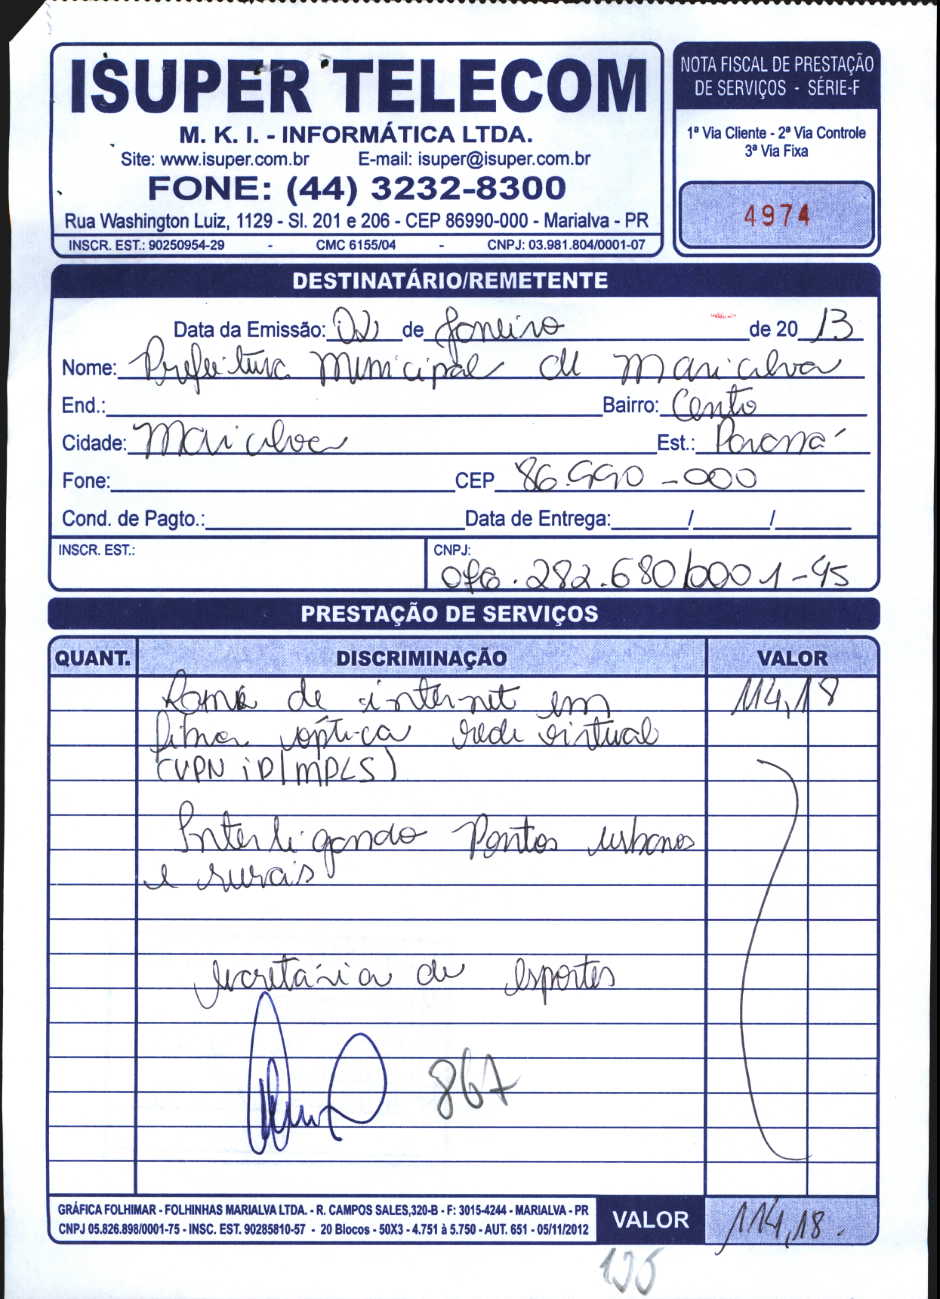 ISUPER TELECOM
M. K. I. - INFORMÁTICA LTDA.
Site: www.isuper.com.br E-mail: isuper@isuper.com.br
FONE: (44) 3232-8300
Rua Washington Luiz, 1129 - Sl. 201 e 206 - CEP 86990-000 - Marialva - PR
INSCR. EST.: 90250954-29 - CMC 6155/04 - CNPJ: 03.981.804/0001-07
NOTA FISCAL DE PRESTAÇÃO
DE SERVIÇOS - SÉRIE-F
1ª Via Cliente - 2ª Via Controle
3ª Via Fixa
4974
DESTINATÁRIO/REMETENTE
Data da Emissão: de Janeiro de 20 13
Nome: Prefeitura Municipal de Marialva
End.: Bairro: Cento
Cidade: Marialva Est.: Paraná
Fone: CEP 86.990-000
Cond. de Pagto.: Data de Entrega: / /
INSCR. EST.: CNPJ:
076.282.680/0001-45
PRESTAÇÃO DE SERVIÇOS
QUANT. DISCRIMINAÇÃO VALOR
de internet em 114,18
fibra óptica rede virtual
(VPN IP/MPLS)
Interligando Pontos urbanos
e rurais
secretária de esportes
867
GRÁFICA FOLHIMAR - FOLHINHAS MARIALVA LTDA. - R. CAMPOS SALES,320-B - F: 3015-4244 - MARIALVA - PR
CNPJ 05.826.898/0001-75 - INSC. EST. 90285810-57 - 20 Blocos - 50X3 - 4.751 à 5.750 - AUT. 651 - 05/11/2012
VALOR 114,18.